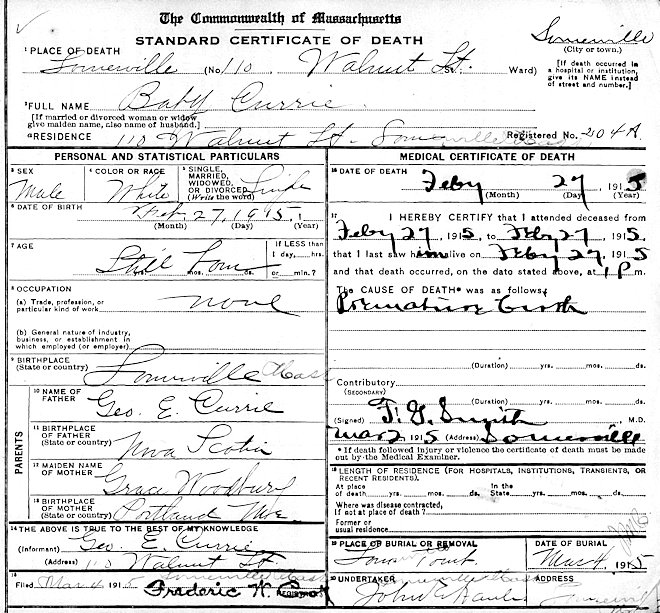 The Commonwealth of Massachusetts
STANDARD CERTIFICATE OF DEATH
Somerville
(City or town.)
1 PLACE OF DEATH
Somerville (No. 110 Walnut St. St. Ward)
[If death occurred in a hospital or institution, give its NAME instead of street and number.]
2 FULL NAME Baby Currie
[If married or divorced woman or widow give maiden name, also name of husband.]
RESIDENCE 110 Walnut St. Somerville Mass Registered No. 204A
PERSONAL AND STATISTICAL PARTICULARS
3 SEX Male
4 COLOR OR RACE White
5 SINGLE, MARRIED, WIDOWED, OR DIVORCED (Write the word) Single
6 DATE OF BIRTH Feb. 27, 1915
(Month) (Day) (Year)
7 AGE Still born
yrs. mos. ds.
If LESS than 1 day, hrs. or min.?
8 OCCUPATION
(a) Trade, profession, or particular kind of work none
(b) General nature of industry, business, or establishment in which employed (or employer)
9 BIRTHPLACE (State or country) Somerville Mass
PARENTS
10 NAME OF FATHER Geo. E. Currie
11 BIRTHPLACE OF FATHER (State or country) Nova Scotia
12 MAIDEN NAME OF MOTHER Grace
13 BIRTHPLACE OF MOTHER (State or country) Portland Me.
14 THE ABOVE IS TRUE TO THE BEST OF MY KNOWLEDGE
(Informant) Geo. E. Currie
(Address) 110 Walnut St.
Somerville Mass
15 Filed Mar 4 191 Frederic W. REGISTRAR
MEDICAL CERTIFICATE OF DEATH
16 DATE OF DEATH
Feby 27, 1915
(Month) (Day) (Year)
17 I HEREBY CERTIFY that I attended deceased from
Feby 27, 1915, to Feby 27, 1915,
that I last saw him alive on Feby 27, 1915
and that death occurred, on the date stated above, at 1 P m.
The CAUSE OF DEATH* was as follows:
Premature birth
(Duration) yrs. mos. ds.
Contributory
(SECONDARY)
(Duration) yrs. mos. ds.
(Signed) Smith M.D.
Mar 2 1915 (Address) Somerville
* If death followed injury or violence the certificate of death must be made out by the Medical Examiner.
18 LENGTH OF RESIDENCE (FOR HOSPITALS, INSTITUTIONS, TRANSIENTS, OR RECENT RESIDENTS).
At place of death yrs. mos. ds. In the State yrs. mos. ds.
Where was disease contracted, if not at place of death?
Former or usual residence
19 PLACE OF BURIAL OR REMOVAL
DATE OF BURIAL
Mar 4 1915
20 UNDERTAKER
John
ADDRESS